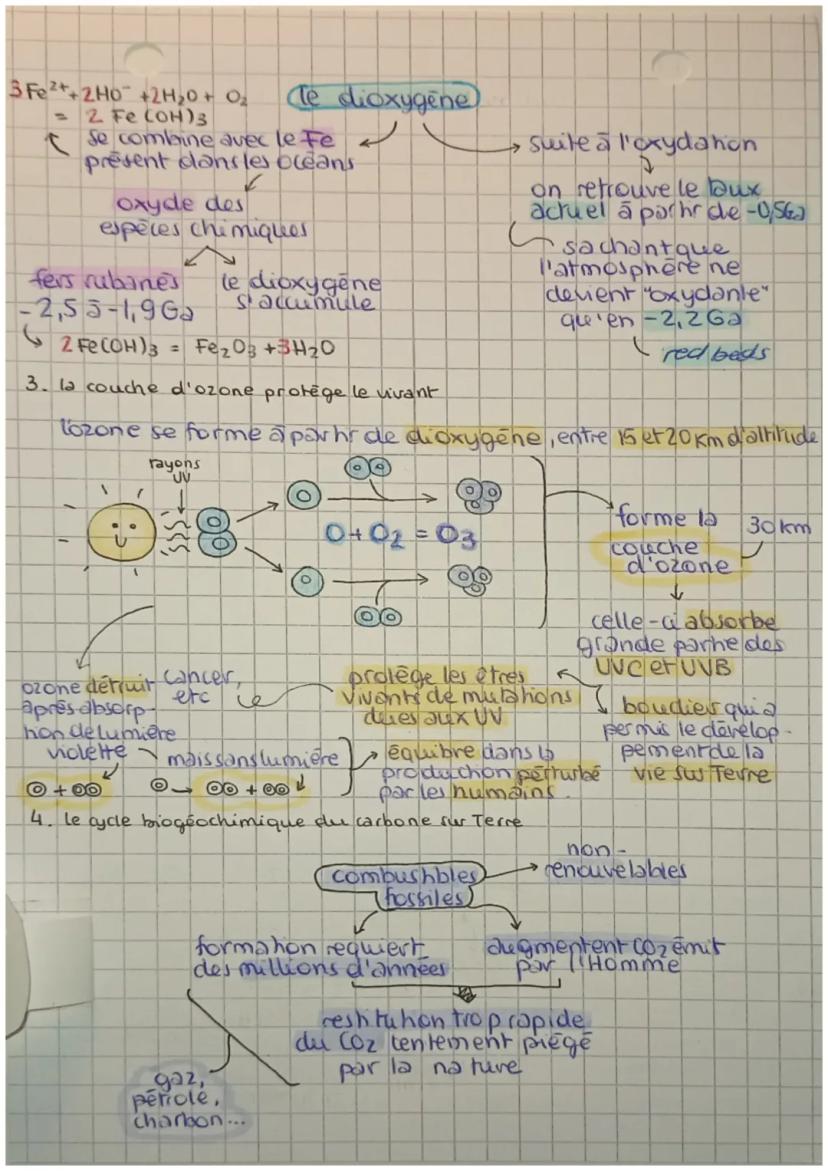 le dioxygène
3Fe²⁺ + 2HO⁻ + 2H₂O + O₂
= 2 Fe(OH)3
se combine avec le Fe
présent dans les océans
oxyde des
espèces chimiques
fers rubanés
-2,5 à -1,9 Ga
2Fe(OH)3 = Fe₂O₃ + 3H₂O
le dioxygène
s'accumule
suite à l'oxydation
on retrouve le taux
actuel à partir de -0,5Ga
sachant que
l'atmosphère ne
devient "oxydante"
qu'en -2,2Ga
red beds
3. la couche d'ozone protège le vivant
l'ozone se forme à partir de dioxygène, entre 15 et 20 km d'altitude
rayons
UV
O + O₂ = O₃
forme la
couche
d'ozone
30 km
celle-ci absorbe
grande partie des
UVC et UVB
protège les êtres
vivants de mutations
dues aux UV
cancer,
etc
boucliers qui a
permis le dévelop-
pement de la
vie sur Terre
ozone détruit
après absorp-
tion de lumière
violette
mais sans lumière
équibre dans la
production perturbé
par les humains.
4. le cycle biogéochimique du carbone sur Terre
combustibles
fossiles
non-
renouvelables
formation requiert
des millions d'années
augmentent CO2 émit
par l'Homme
restitution trop rapide
du CO2 lentement piégé
par la nature
gaz,
pétrole,
charbon...